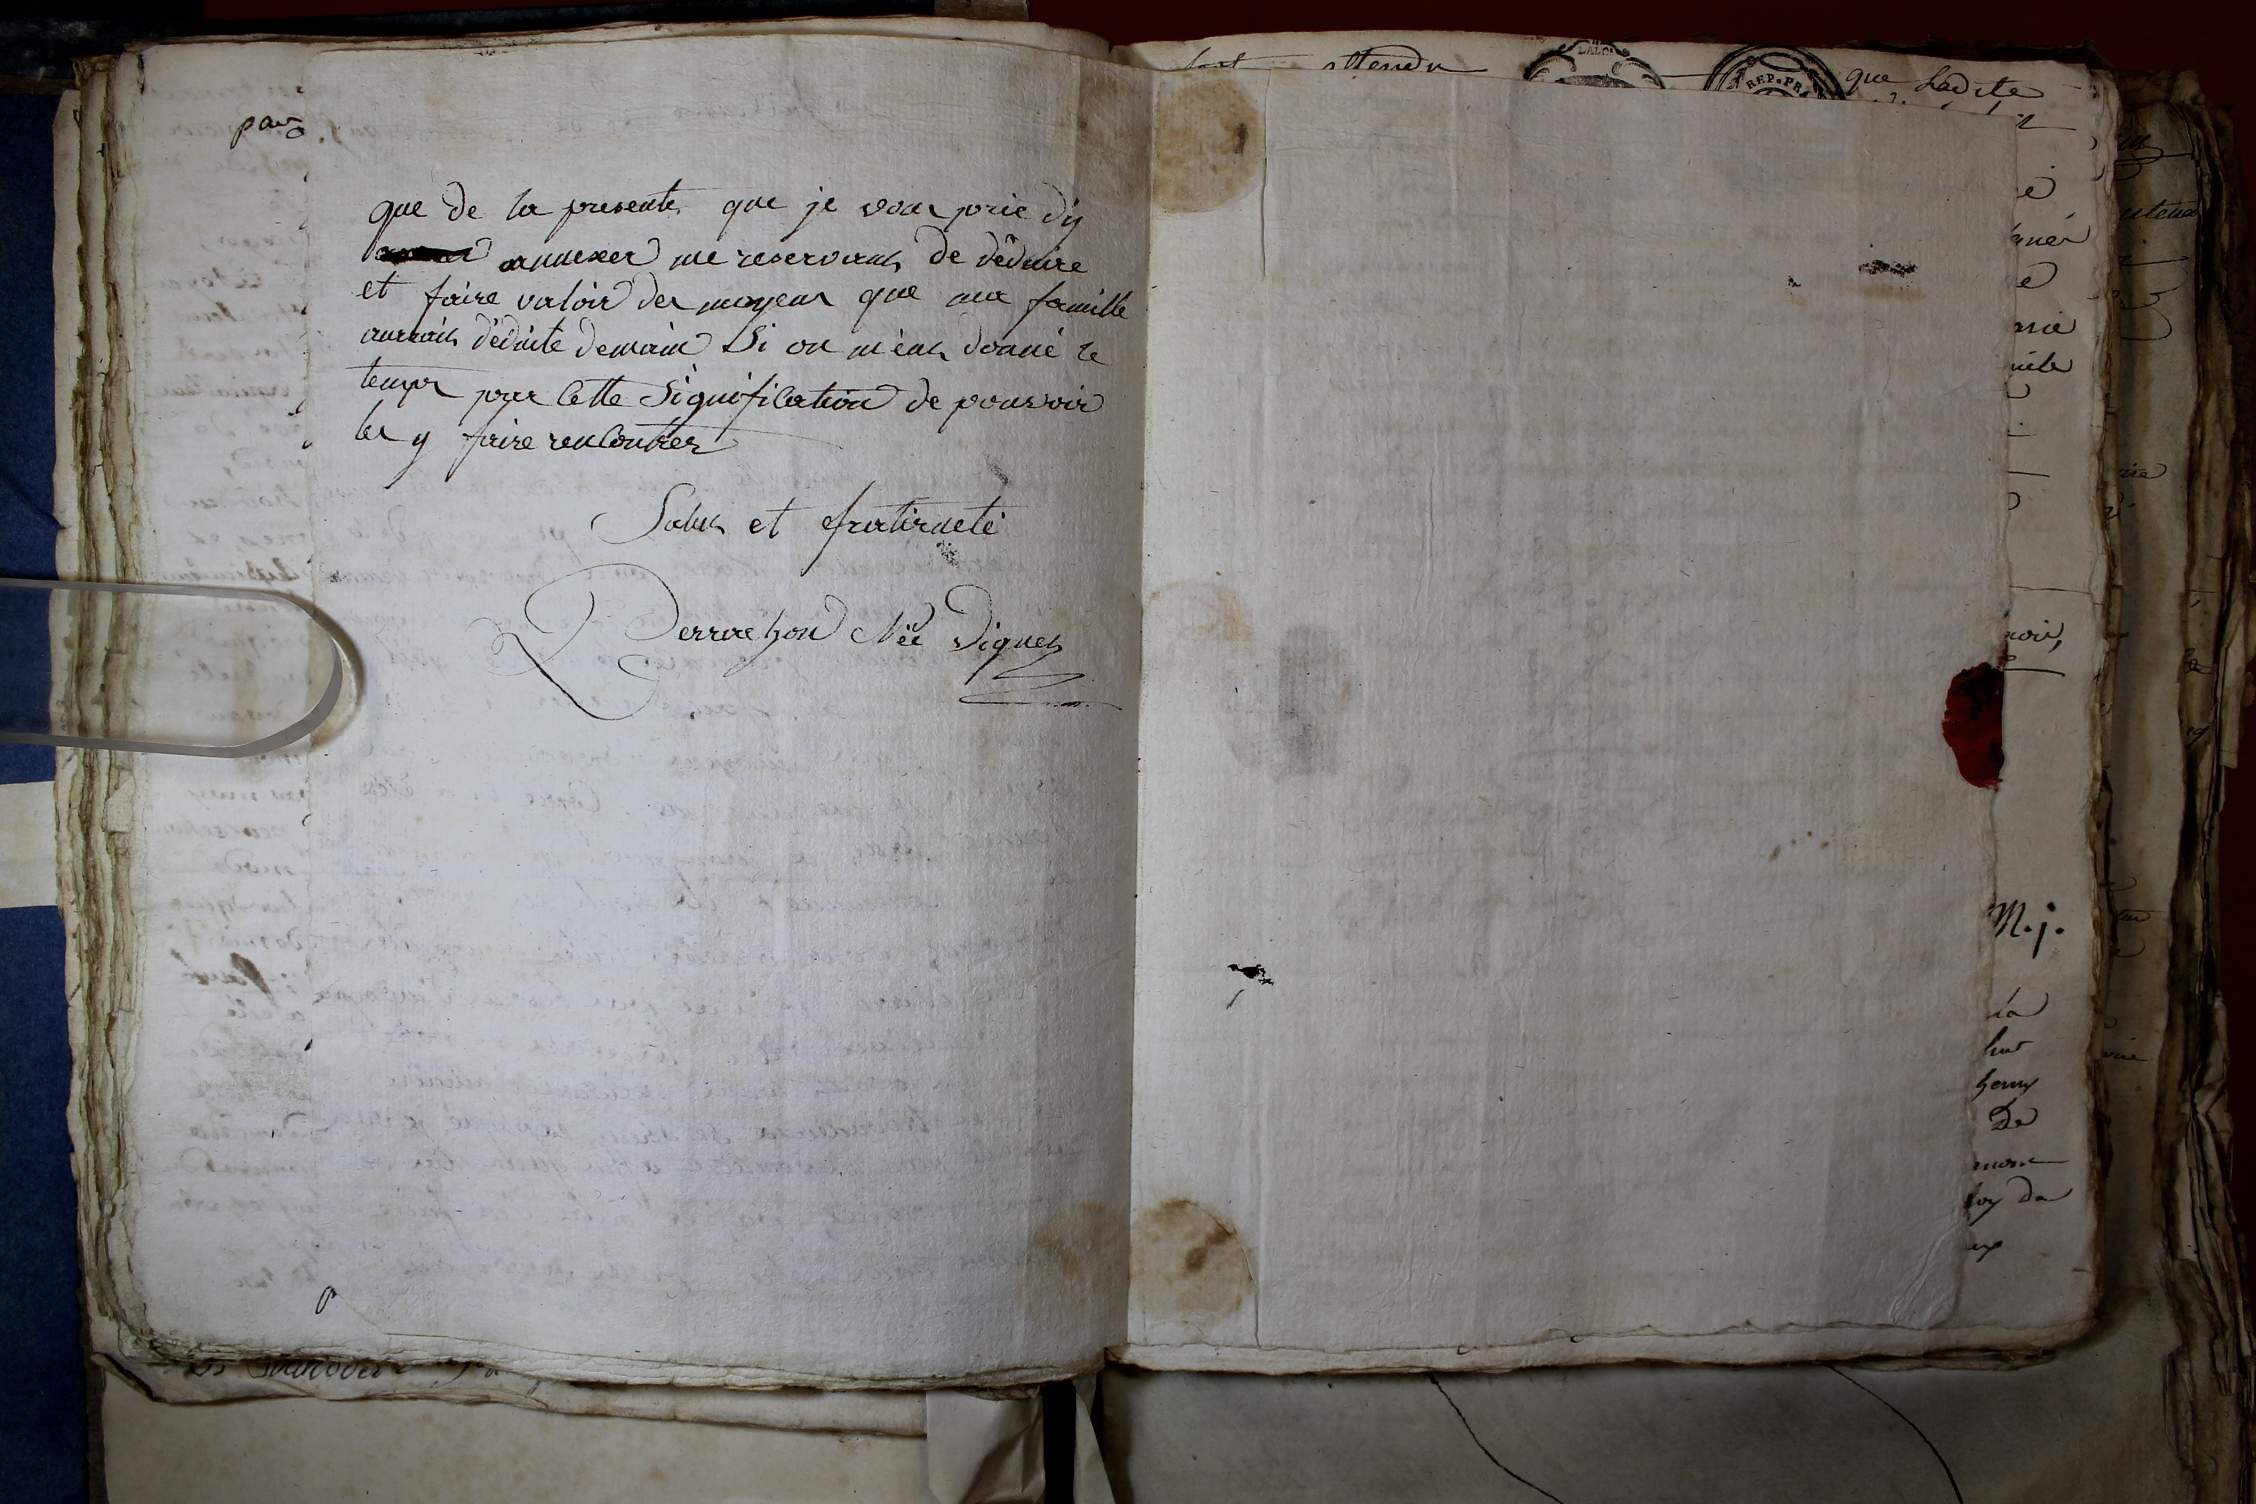 par
que de la presente que je vous prie d'y
annexer me reservant de déduire
et faire valoir des moyens que ma famille
auroit déduite demain Si on m'eut donné le
temps par cette Signification de pouvoir
les y faire rencontrer
Salut et fraterneté
Perrachon Née Vignes
attendu que Ladite
REP. FRA
M. j.
De